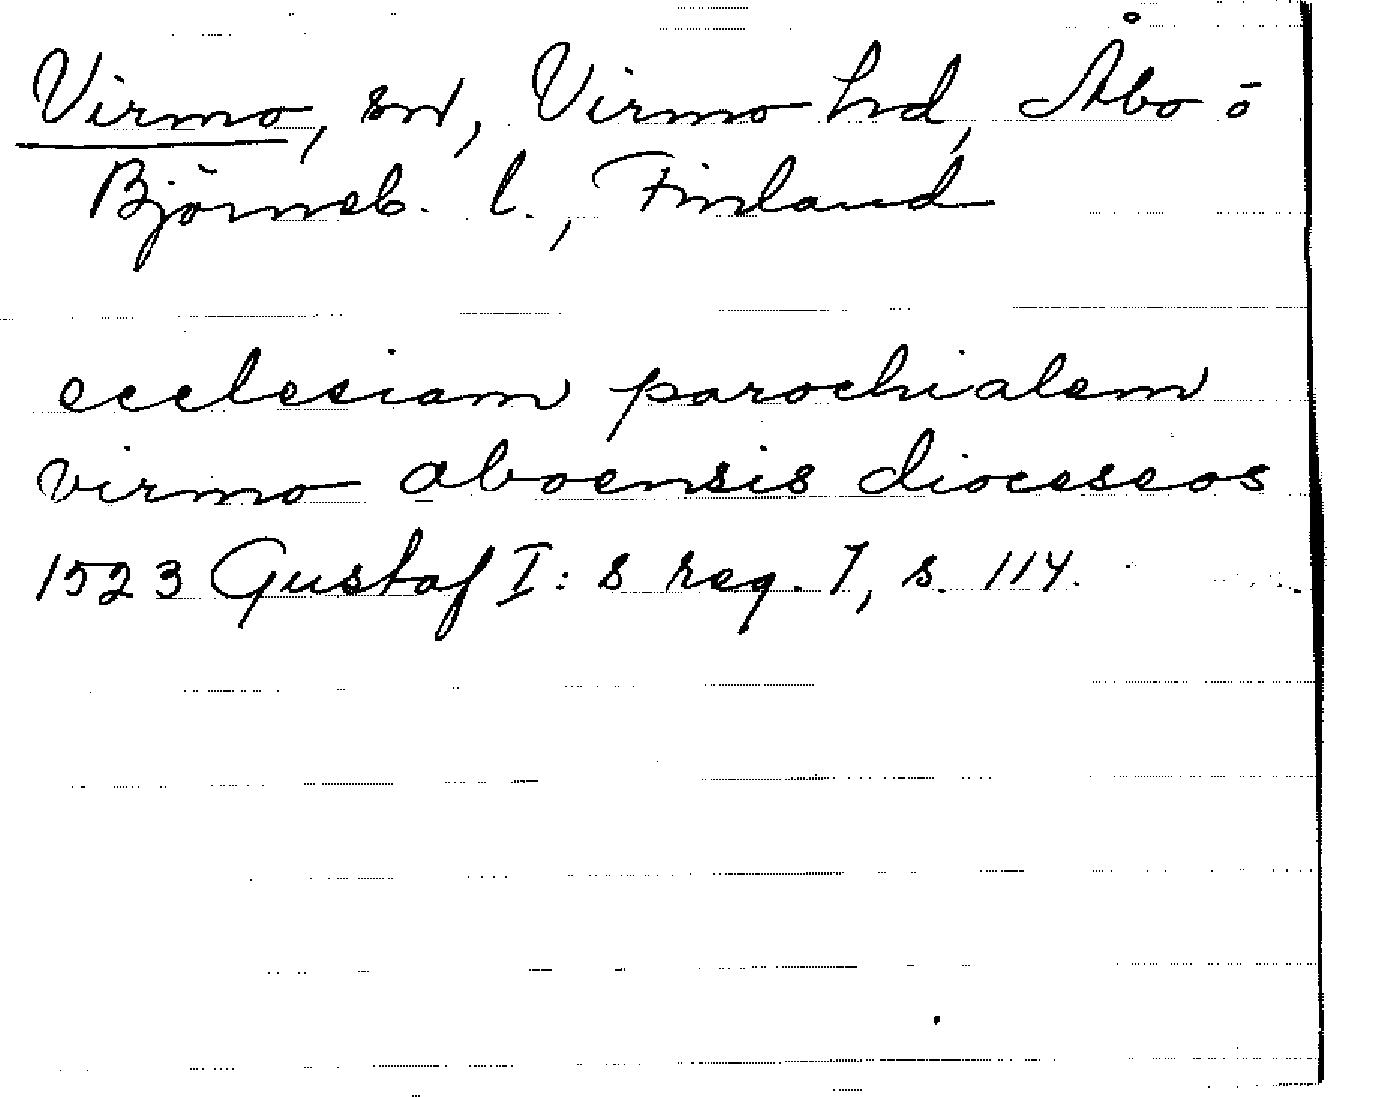 Virmo, sn, Virmo hd, Åbo ō
Björneb. l., Finland
ecclesiam parochialem
virmo aboensis dioceseos
1523 Gustaf I: s reg. 1, s. 114.